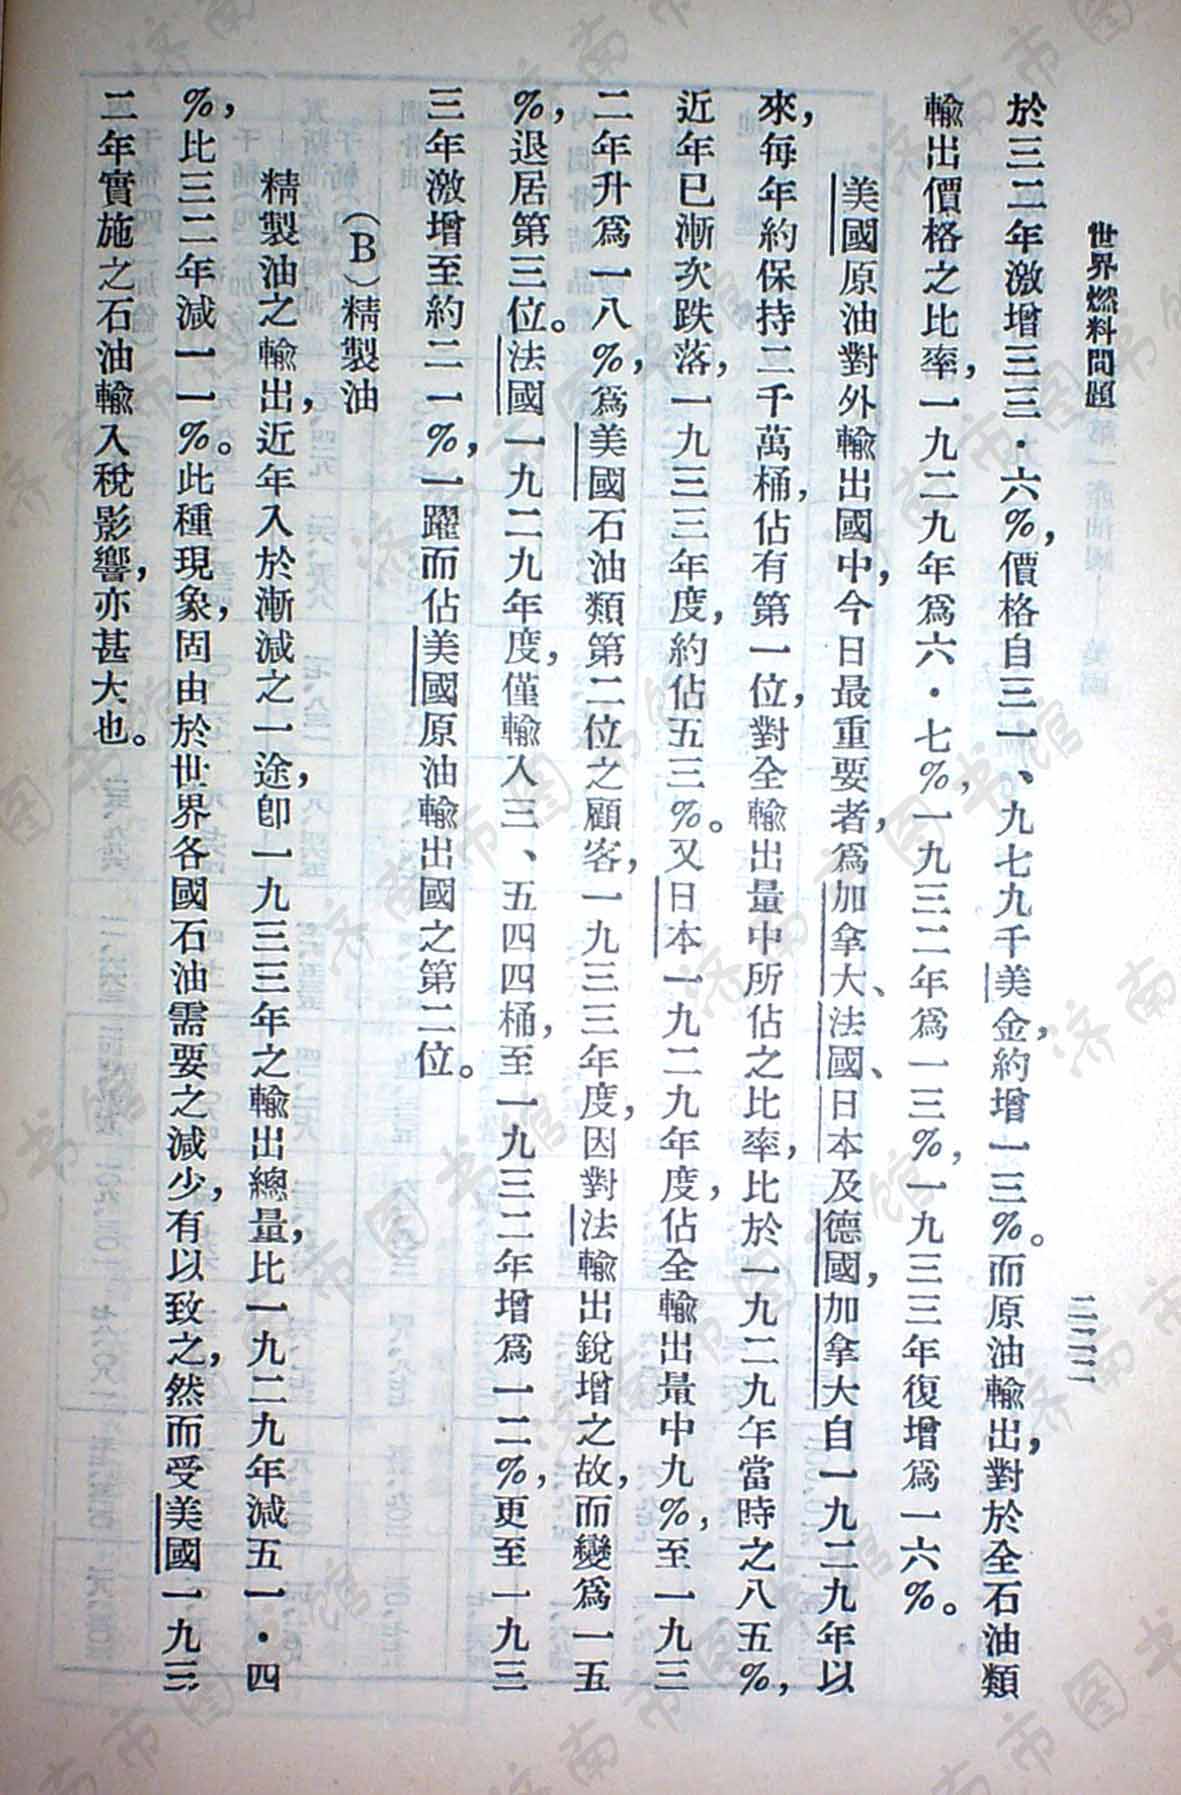 世界燃料問題 二二二
於三二年激增三三·六%，價格自三一、九七九千美金，約增一三%。而原油輸出，對於全石油類
輸出價格之比率，一九二九年爲六·七%，一九三二年爲一三%，一九三三年復增爲一六%。
美國原油對外輸出國中，今日最重要者，爲加拿大、法國、日本及德國，加拿大自一九二九年以
來，每年約保持二千萬桶，佔有第一位，對全輸出量中所佔之比率，比於一九二九年當時之八五%，
近年已漸次跌落，一九三三年度，約佔五三%。又日本一九二九年度，佔全輸出量中九%，至一九三
二年升爲一八%，爲美國石油類第二位之顧客，一九三三年度，因對法輸出銳增之故，而變爲一五
%，退居第三位。法國一九二九年度，僅輸入三、五四四桶，至一九三二年增爲一二%，更至一九三
三年激增至約二一%，一躍而佔美國原油輸出國之第二位。
（B）精製油
精製油之輸出，近年入於漸減之一途，卽一九三三年之輸出總量，比一九二九年減五一·四
%，比三二年減一一%。此種現象，固由於世界各國石油需要之減少，有以致之，然而受美國一九三
二年實施之石油輸入稅影響，亦甚大也。
济南市图书馆